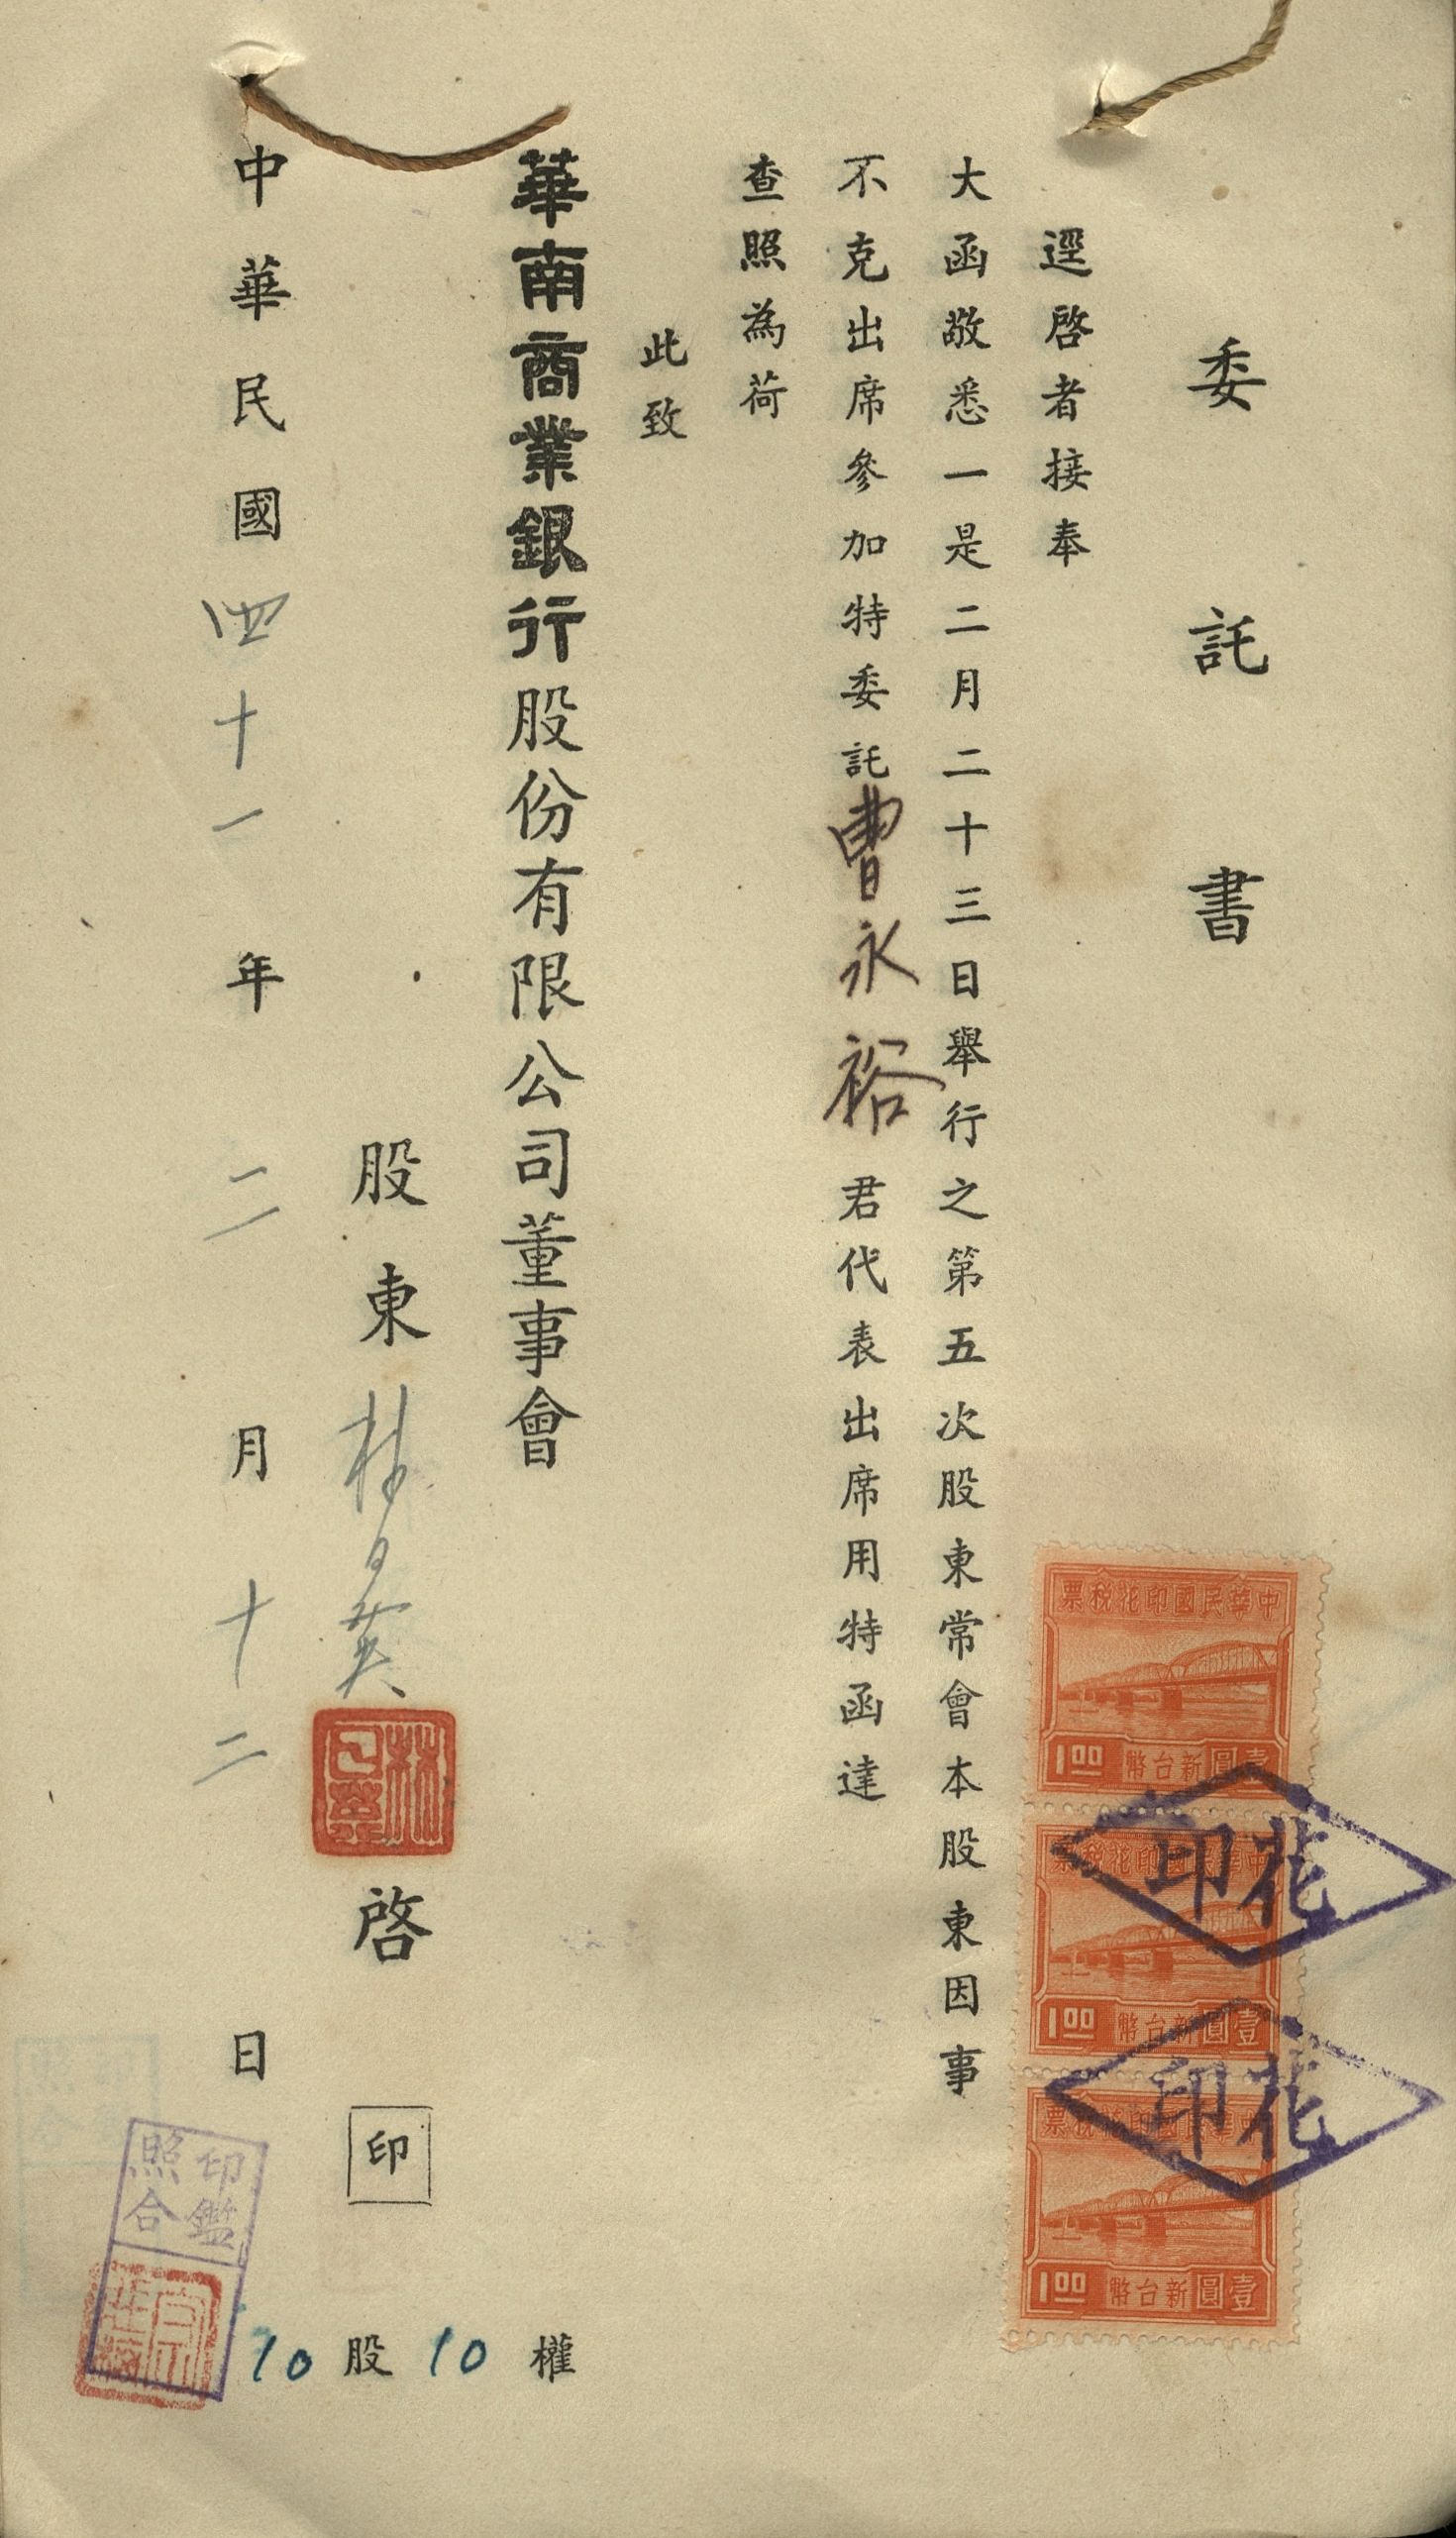 委託書
逕啓者接奉
大函敬悉一是二月二十三日舉行之第五次股東常會本股東因事
不克出席參加特委託曹永裕君代表出席用特函達
查照為荷
此致
華南商業銀行股份有限公司董事會
股東林啓
印
中華民國四十一年二月十二日
10股10權
中華民國印花稅票
壹圓新台幣
1.00
中華民國印花稅票
壹圓新台幣
1.00
中華民國印花稅票
壹圓新台幣
1.00
花印
花印
印鑑
照合